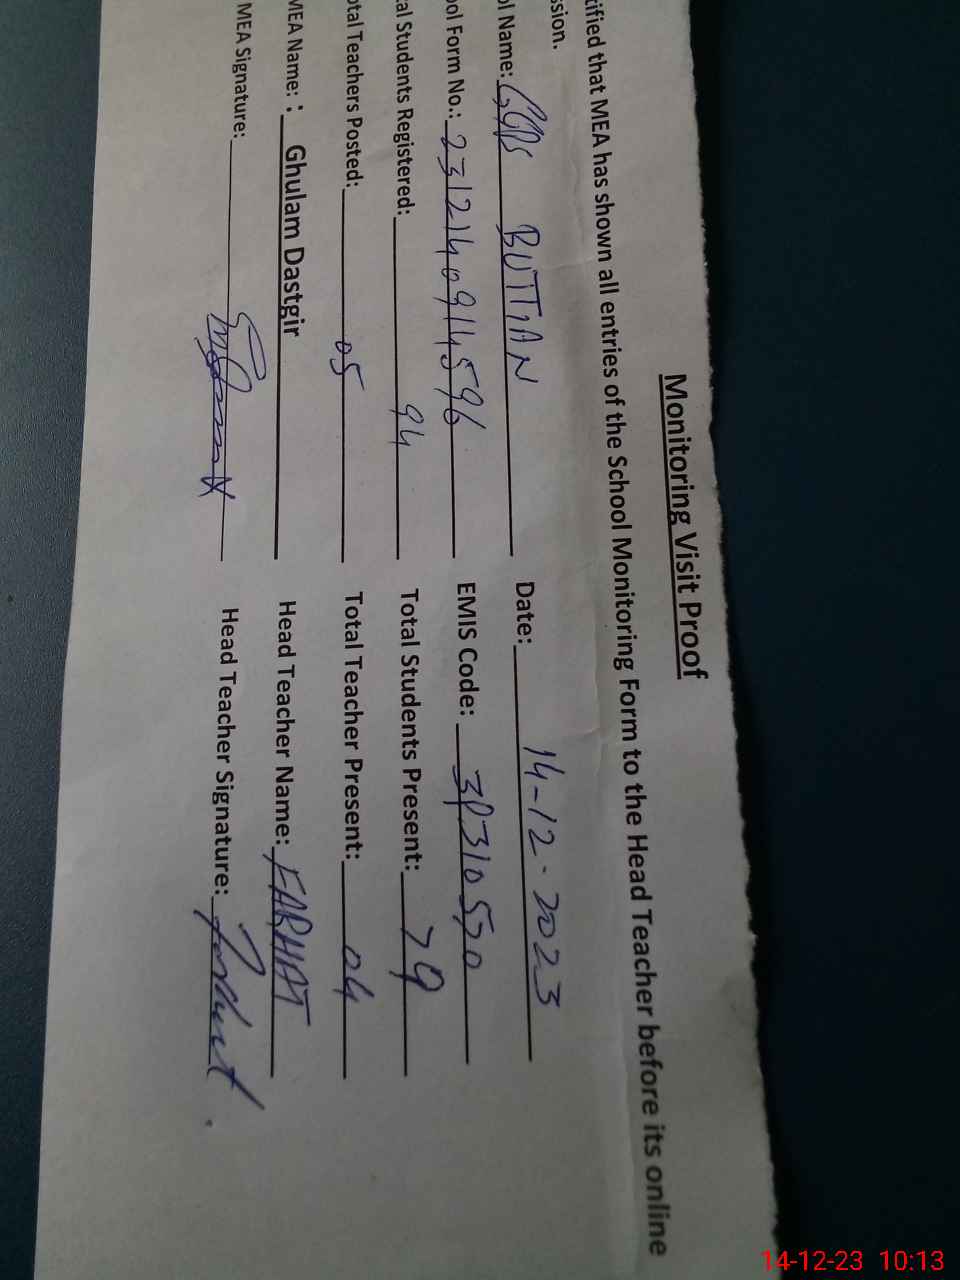 Monitoring Visit Proof
tified that MEA has shown all entries of the School Monitoring Form to the Head Teacher before its online
ssion.
ol Name: GGPS BUTTIAN Date: 14-12-2023
ool Form No.: 23121409114596 EMIS Code: 38310550
tal Students Registered: 94 Total Students Present: 79
otal Teachers Posted: 05 Total Teacher Present: 04
MEA Name: : Ghulam Dastgir Head Teacher Name: FARHAT
MEA Signature: Head Teacher Signature: Farhat
14-12-23 10:13